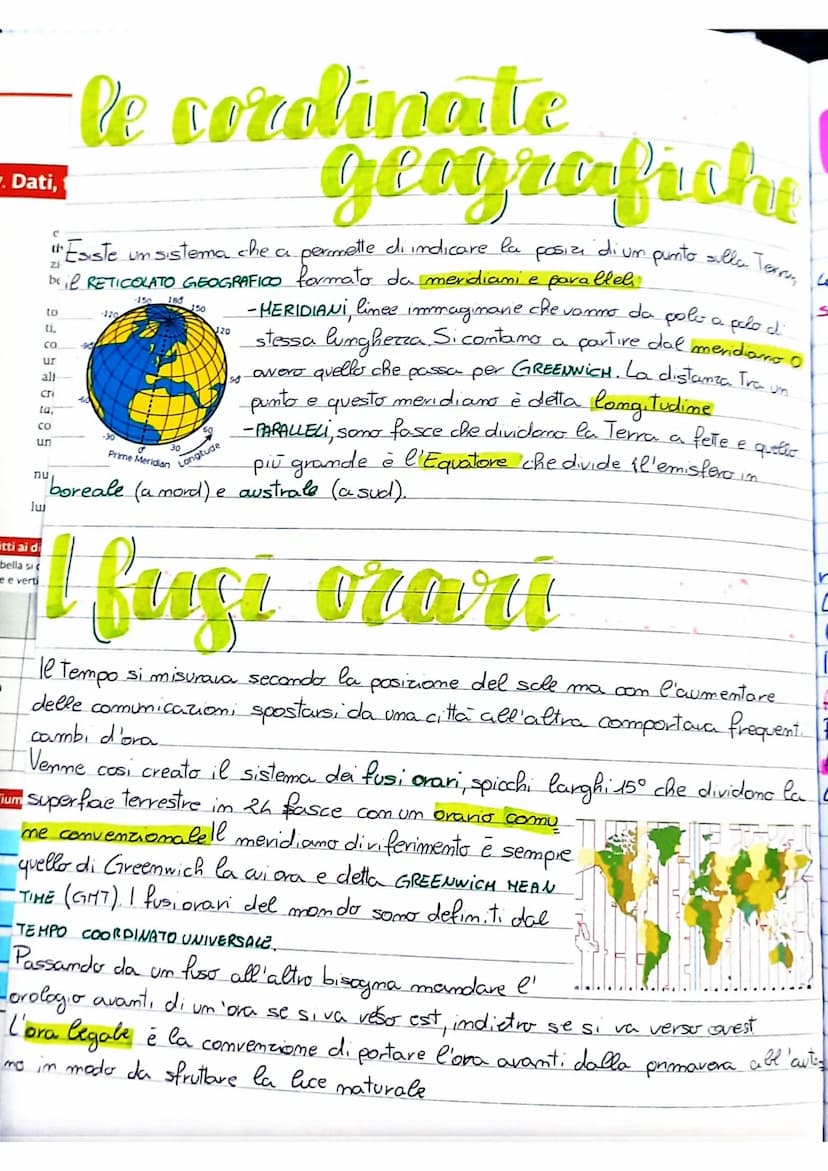 le cordinate
geografiche
7. Dati,
Esiste un sistema che ci permette di indicare la posizi di un punto sulla Terra,
il RETICOLATO GEOGRAFICO formato da meridiani e paralleli
-MERIDIANI, linee immaginarie che vanno da polo a polo di
stessa lunghezza. Si contano a partire dal meridiano 0
ovvero quello che passa per GREENWICH. La distanza tra un
punto e questo meridiano è detta longitudine
-PARALLELI, sono fasce che dividono la Terra a fette e quello
più grande è l'Equatore che divide l'emisfero in
boreale (a nord) e australe (a sud).
-150 180 150
-120 120
-90 90
-60 60
-30 0 30
Prime Meridian Longitude
to
ti,
co
ur
ali
cri
ta,
co
un
nu
lui
itti ai di
bella si c
e e verti
I fusi orari
Il tempo si misurava secondo la posizione del sole ma con l'aumentare
delle comunicazioni spostarsi da una città all'altra comportava frequenti
cambi d'ora
Venne così creato il sistema dei fusi orari, spicchi larghi 15° che dividono la
superficie terrestre in 24 fasce con un orario comu
ne convenzionale Il meridiano di riferimento è sempre
quello di Greenwich la cui ora e detta GREENWICH MEAN
TIME (GMT). I fusi orari del mondo sono definiti dal
TEMPO COORDINATO UNIVERSALE.
Passando da un fuso all'altro bisogna mandare l'
orologio avanti di un'ora se si va verso est, indietro se si va verso ovest
L'ora legale è la convenzione di portare l'ora avanti dalla primavera all'autu
no in modo da sfruttare la luce naturale
ium